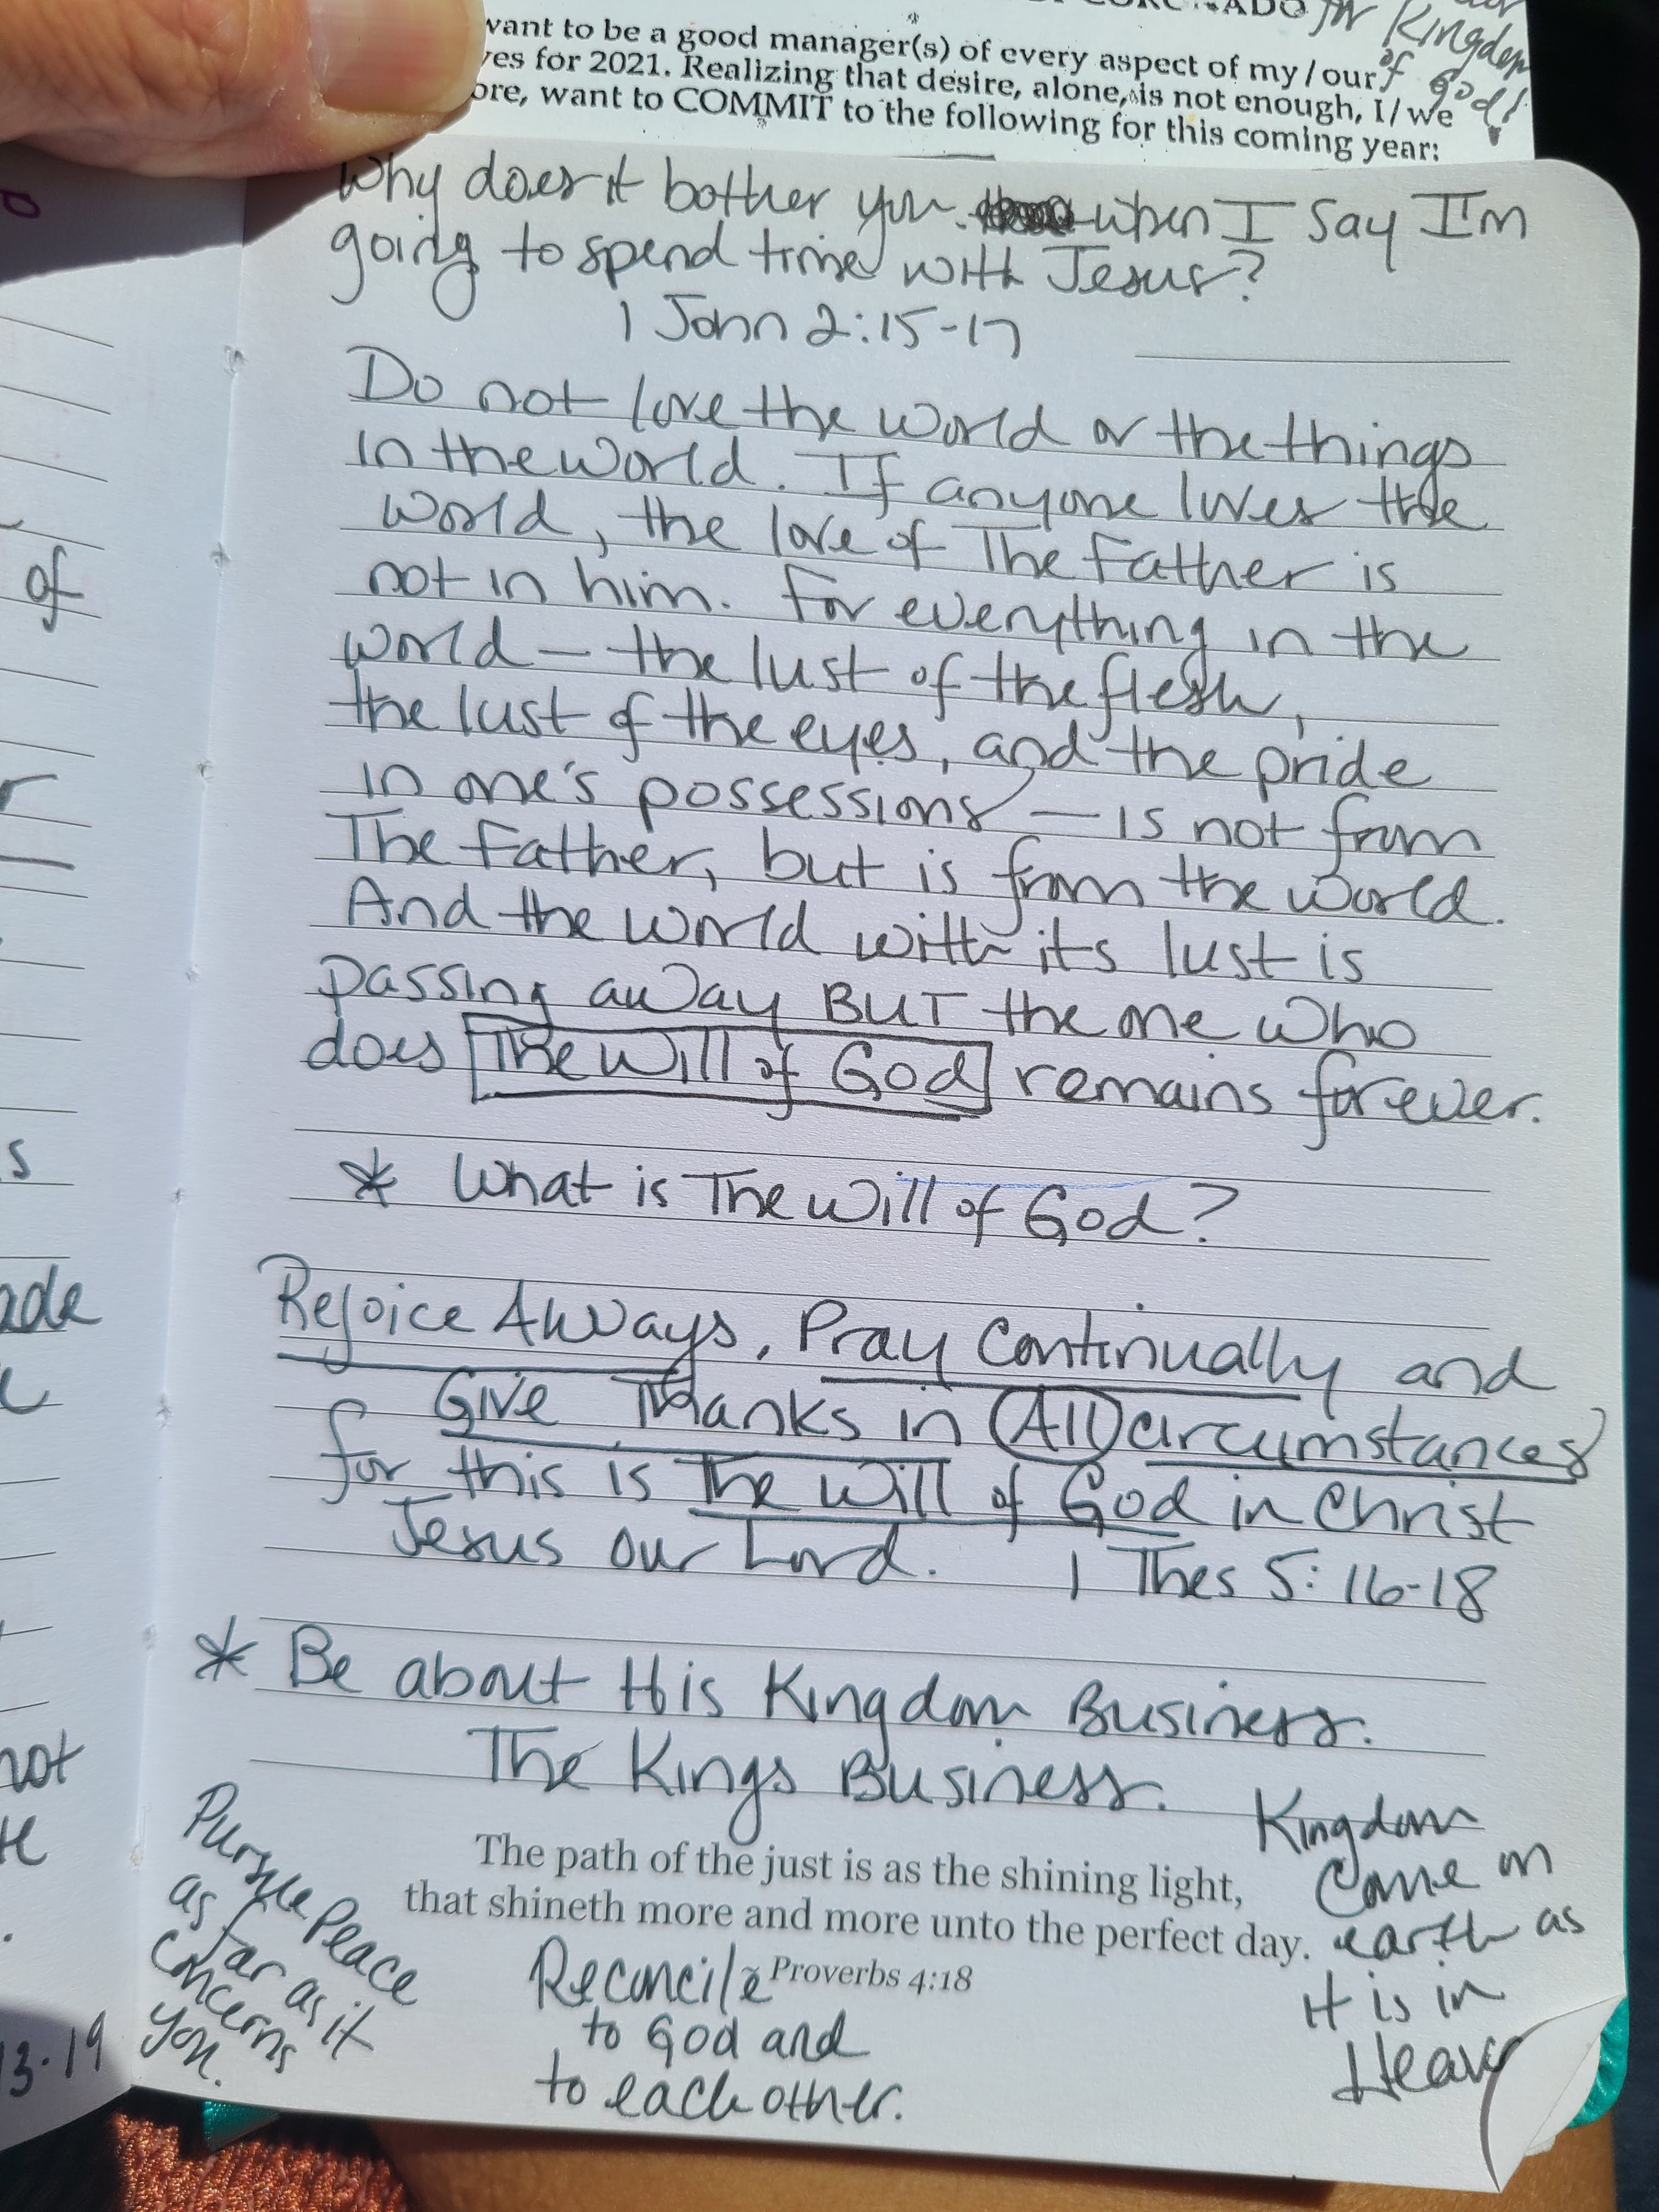 for Kingdom
of God!
want to be a good manager(s) of every aspect of my/our
ves for 2021. Realizing that desire, alone, is not enough, I/we
ore, want to COMMIT to the following for this coming year:
Why does it bother you when I say I'm
going to spend time with Jesus?
1 John 2:15-17
Do not love the world or the things
in the world. If anyone loves the
world, the love of The Father is
not in him. For everything in the
world — the lust of the flesh,
the lust of the eyes, and the pride
in one's possessions — is not from
The Father, but is from the world.
And the world with its lust is
passing away BUT the one who
does The Will of God remains forever.
* What is The Will of God?
Rejoice Always, Pray Continually and
Give Thanks in All circumstances
for this is The Will of God in Christ
Jesus our Lord. 1 Thes 5:16-18
* Be about His Kingdom Business.
The Kings Business.
The path of the just is as the shining light,
that shineth more and more unto the perfect day.
Proverbs 4:18
Kingdom
Come on
earth as
it is in
Heav
Reconcile
to God and
to each other.
Pursue Peace
as far as it
concerns
you.
of
r
s
ade
not
13.19